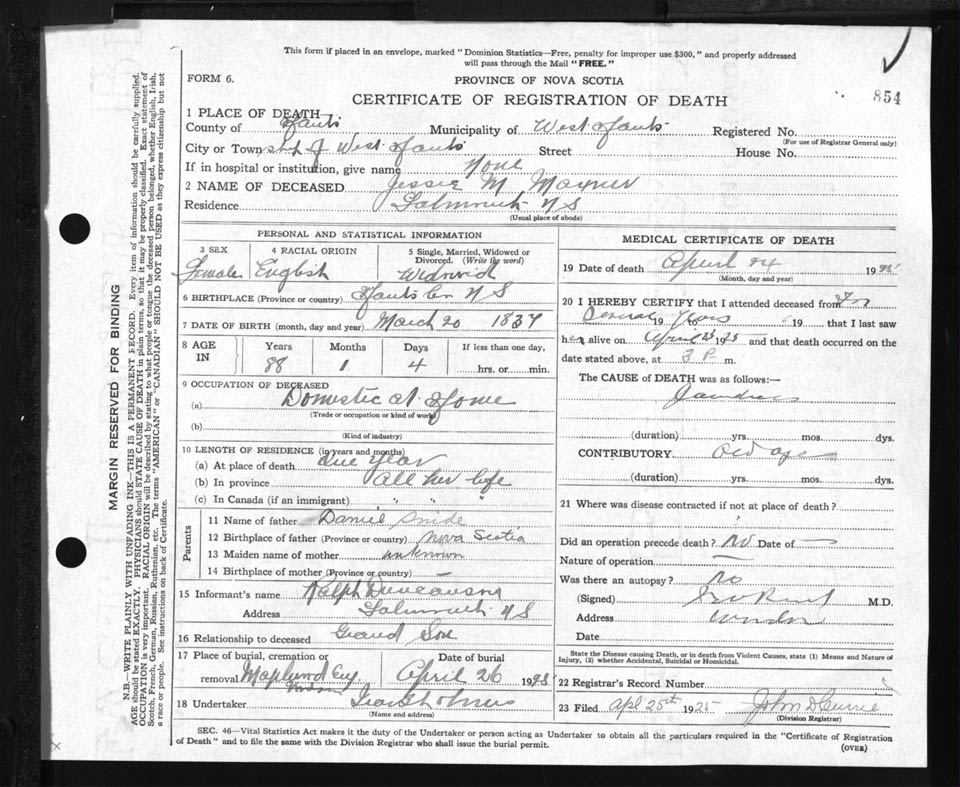 This form if placed in an envelope, marked "Dominion Statistics—Free, penalty for improper use $300," and properly addressed
will pass through the Mail "FREE."
FORM 6.
PROVINCE OF NOVA SCOTIA
CERTIFICATE OF REGISTRATION OF DEATH
854
1 PLACE OF DEATH
County of Hants Municipality of West Hants Registered No.
(For use of Registrar General only)
City or Township of West Hants Street House No.
If in hospital or institution, give name None
2 NAME OF DECEASED Jessie M
Residence Falmouth N S
(Usual place of abode)
PERSONAL AND STATISTICAL INFORMATION
3 SEX 4 RACIAL ORIGIN 5 Single, Married, Widowed or
Divorced. (Write the word)
Female English Widowed
6 BIRTHPLACE (Province or country) Hants Co N S
7 DATE OF BIRTH (month, day and year) March 20 1837
8 AGE IN Years Months Days If less than one day,
88 1 4 hrs. or min.
9 OCCUPATION OF DECEASED
(a) Domestic at Home
(Trade or occupation or kind of work)
(b)
(Kind of industry)
10 LENGTH OF RESIDENCE (in years and months)
(a) At place of death one year
(b) In province all her life
(c) In Canada (if an immigrant) " " "
Parents
11 Name of father Daniel
12 Birthplace of father (Province or country) Nova Scotia
13 Maiden name of mother unknown
14 Birthplace of mother (Province or country) —
15 Informant's name Ralph Duncanson
Address Falmouth N S
16 Relationship to deceased Grand Son
17 Place of burial, cremation or Date of burial
removal April 26 1925
18 Undertaker
(Name and address)
MEDICAL CERTIFICATE OF DEATH
19 Date of death April 24 1925
(Month, day and year)
20 I HEREBY CERTIFY that I attended deceased from For
Several 19 Years to 19 that I last saw
her alive on April 23 1925 and that death occurred on the
date stated above, at 3 P. m.
The CAUSE OF DEATH was as follows:—
Jaundice
(duration) yrs. mos. dys.
CONTRIBUTORY old age
(duration) yrs. mos. dys.
21 Where was disease contracted if not at place of death?
Did an operation precede death? no Date of —
Nature of operation —
Was there an autopsy? no
(Signed) M.D.
Address Windsor
Date
State the Disease causing Death, or in death from Violent Causes, state (1) Means and Nature of
Injury, (2) whether Accidental, Suicidal or Homicidal.
22 Registrar's Record Number
23 Filed Apl 25th 1925 John D Currie
(Division Registrar)
SEC. 46—Vital Statistics Act makes it the duty of the Undertaker or person acting as Undertaker to obtain all the particulars required in the "Certificate of Registration
of Death" and to file the same with the Division Registrar who shall issue the burial permit.
(OVER)
MARGIN RESERVED FOR BINDING
N.B.—WRITE PLAINLY WITH UNFADING INK—THIS IS A PERMANENT RECORD. Every item of information should be carefully supplied.
AGE should be stated EXACTLY. PHYSICIANS should STATE CAUSE OF DEATH in plain terms, so that it may be properly classified. Exact statement of
OCCUPATION is very important. RACIAL ORIGIN will be described by stating to what people or tongue the deceased person belonged, whether English, Irish,
Scotch, French, German, Russian, Ruthenian, etc. The terms "AMERICAN" or "CANADIAN" SHOULD NOT BE USED as they express citizenship but not
a race or people. See instructions on back of Certificate.